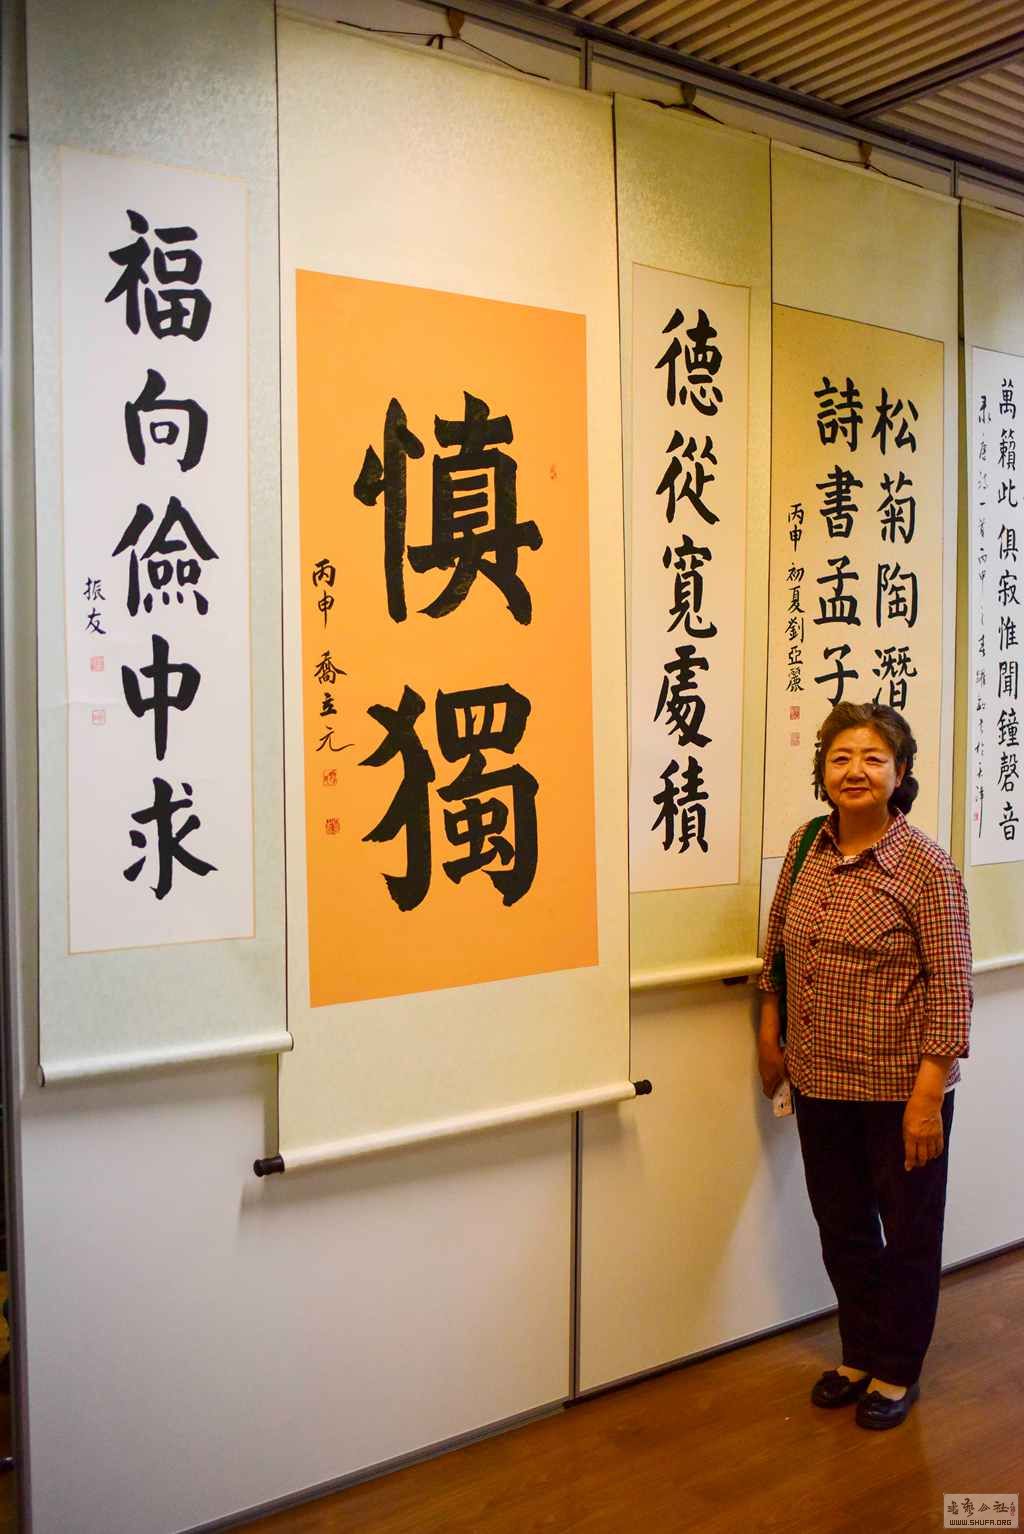 福向儉中求
振友
慎獨
丙申 喬立元
德從寬處積
松菊陶潛
詩書孟子
丙申初夏劉亞麗
萬籟此俱寂惟聞鐘磬音
WWW.SHUFA.ORG